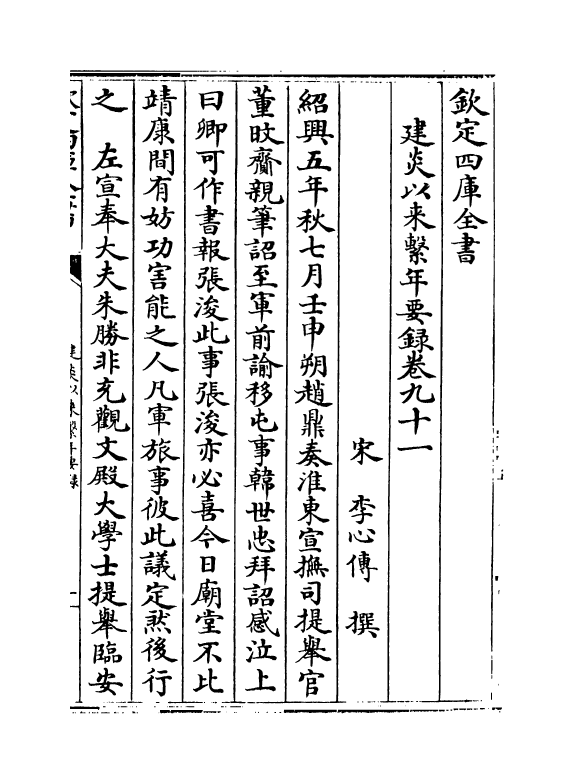 欽定四庫全書
建炎以来繫年要録卷九十一
宋 李心傳 撰
紹興五年秋七月壬申朔趙鼎奏淮東宣撫司提舉官
董旼齎親筆詔至軍前諭移屯事韓世忠拜詔感泣上
曰卿可作書報張浚此事張浚亦必喜今日廟堂不比
靖康間有妨功害能之人凡軍旅事彼此議定然後行
之 左宣奉大夫朱勝非充觀文殿大學士提舉臨安